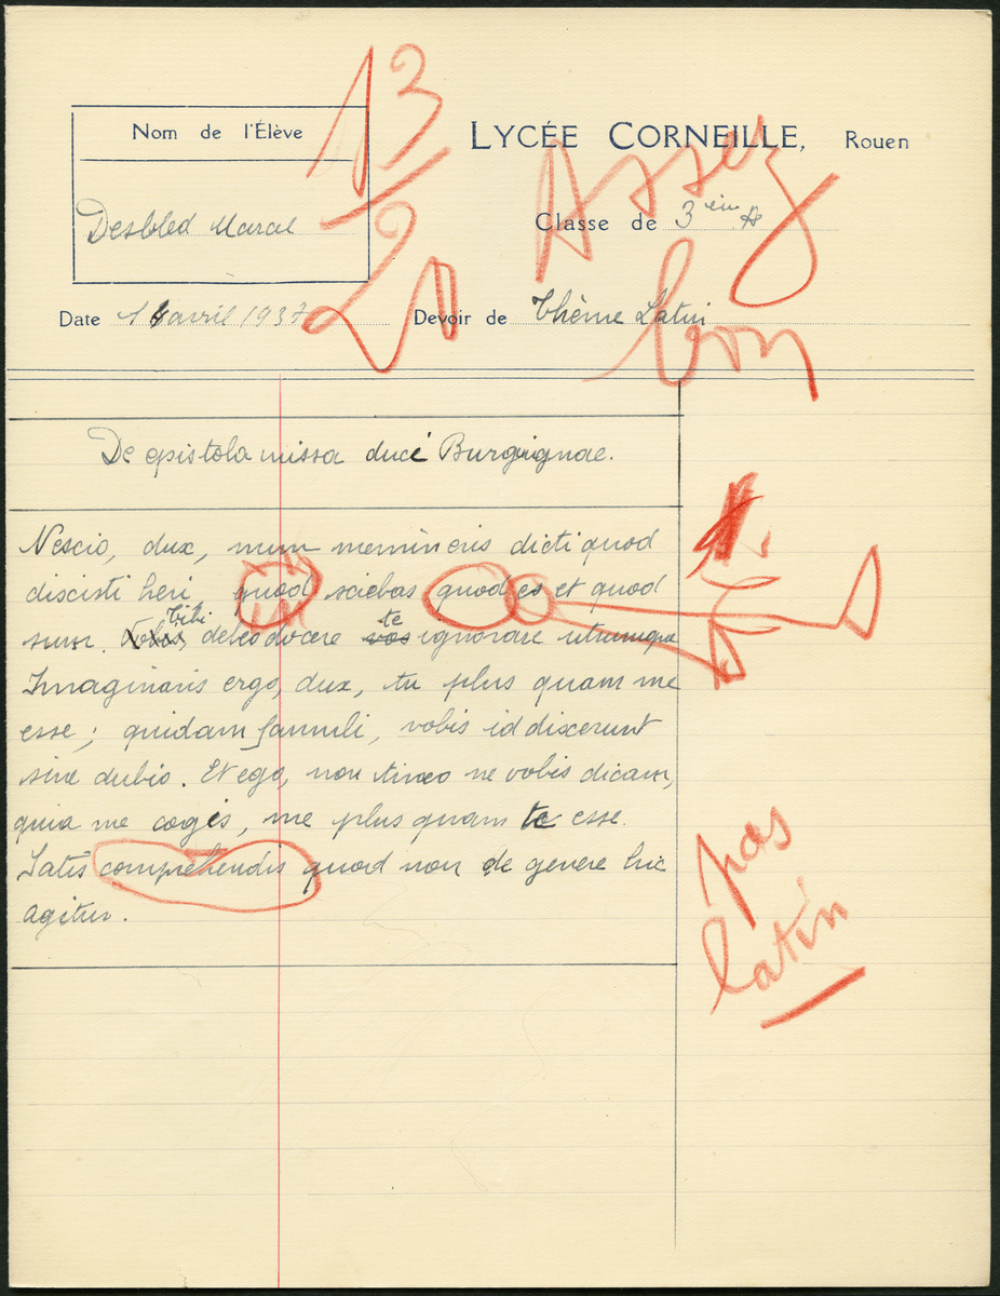 Nom de l'Élève
13/20
LYCÉE CORNEILLE, Rouen
Assez bon
Desbled Marcel
Classe de 3ème A
Date 14 avril 1937
Devoir de Thème Latin
De epistola missa duci Burguignae.
Nescio, dux, num memineris dicti quod
discisti heri quod sciebas quod es et quod
sum. Vobis tibi debeo docere vos te ignorare utrumque
Imaginaris ergo, dux, tu plus quam me
esse ; quidam famuli, vobis id dixerunt
sine dubio. Et ego, non timeo ne vobis dicam,
quia me cogis, me plus quam te esse.
Satis comprehendis quod non de genere hic
agitur.
pas
latin